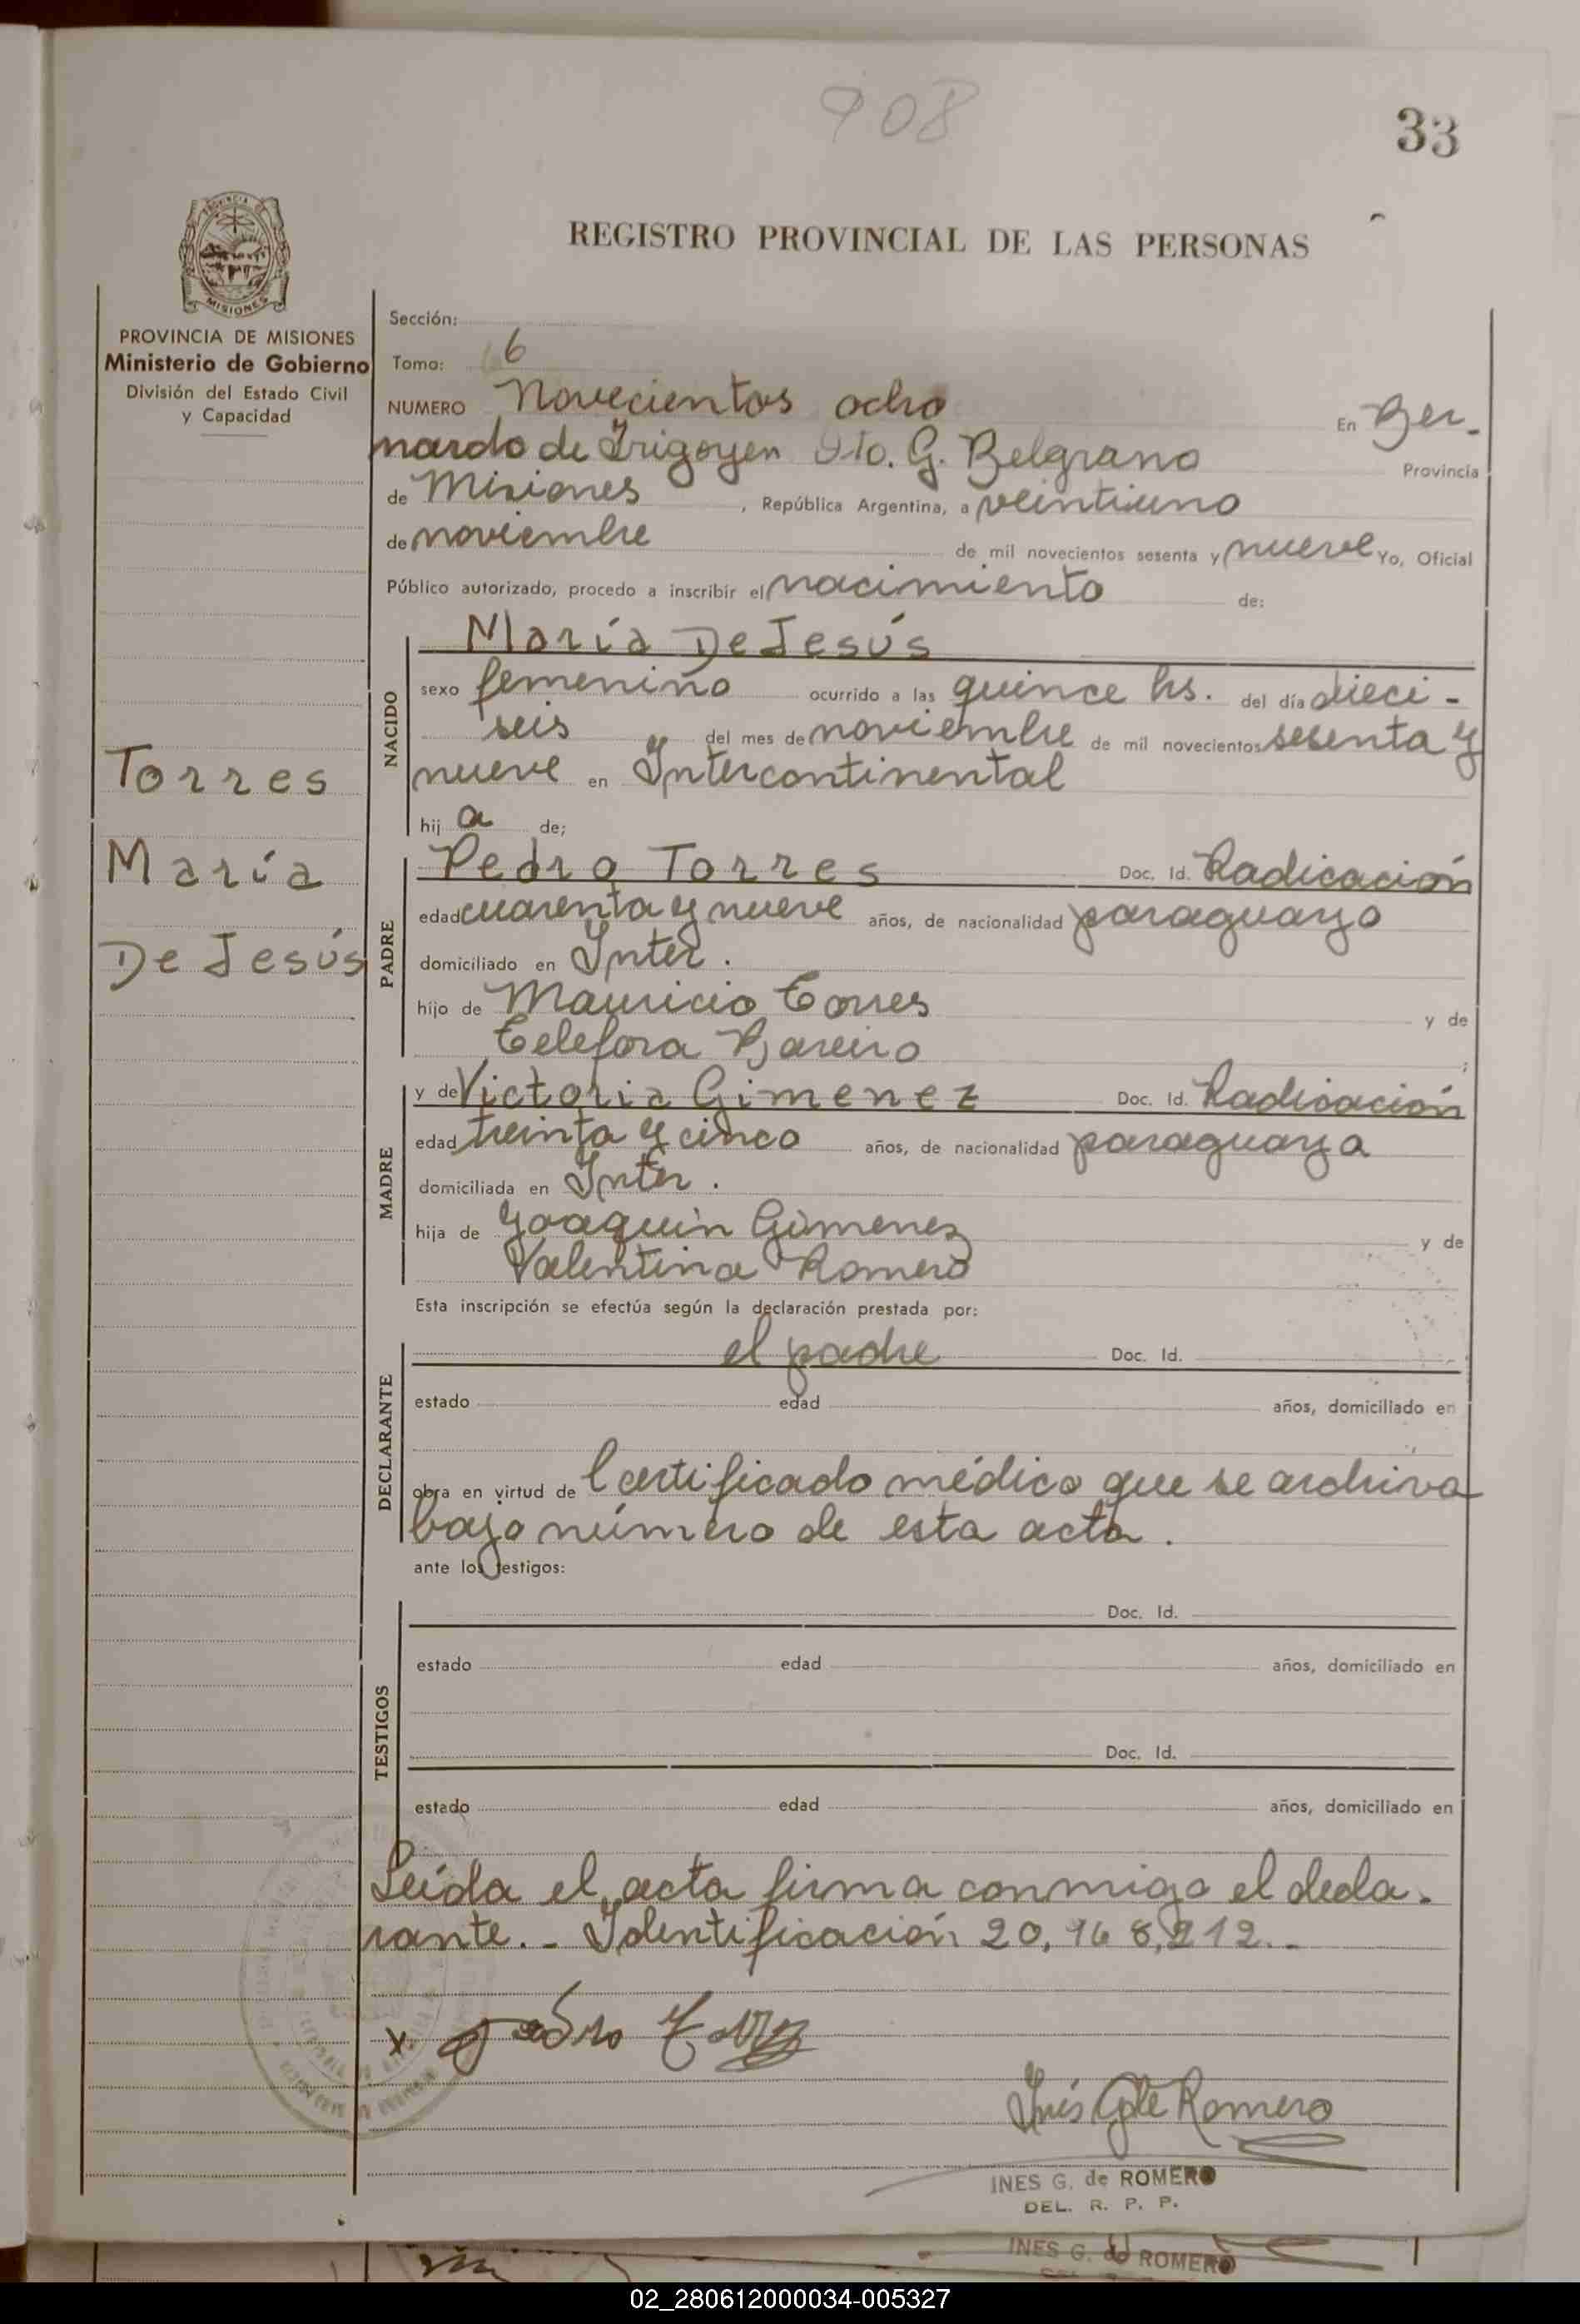 908
33
REGISTRO PROVINCIAL DE LAS PERSONAS
PROVINCIA DE
MISIONES
PROVINCIA DE MISIONES
Ministerio de Gobierno
División del Estado Civil
y Capacidad
Torres
María
De Jesús
Sección:
Tomo: 6
NUMERO Novecientos ocho En Ber-
nardo de Irigoyen Dto. G. Belgrano Provincia
de Misiones, República Argentina, a veintiuno
de noviembre de mil novecientos sesenta y nueve Yo, Oficial
Público autorizado, procedo a inscribir el nacimiento de:
María De Jesús
NACIDO
sexo femenino ocurrido a las quince hs. del día dieci-
seis del mes de noviembre de mil novecientos sesenta y
nueve en Intercontinental
hij a de;
PADRE
Pedro Torres Doc. Id. Radicación
edad cuarenta y nueve años, de nacionalidad paraguayo
domiciliado en Inter.
hijo de Mauricio Torres y de
Telefora Bareiro ;
MADRE
y de Victoria Gimenez Doc. Id. Radicación
edad treinta y cinco años, de nacionalidad paraguaya
domiciliada en Inter.
hija de Joaquín Gimenez y de
Valentina Romero
Esta inscripción se efectúa según la declaración prestada por:
DECLARANTE
el padre Doc. Id.
estado edad años, domiciliado en
obra en virtud de Certificado médico que se archiva
bajo número de esta acta.
ante los testigos:
TESTIGOS
Doc. Id.
estado edad años, domiciliado en
Doc. Id.
estado edad años, domiciliado en
Leída el acta firma conmigo el decla-
rante.- Identificación 20,968,212.-
x Pedro Torres
Inés Gde Romero
INES G. de ROMERO
DEL. R. P. P.
INES G. de ROMERO
02_280612000034-005327